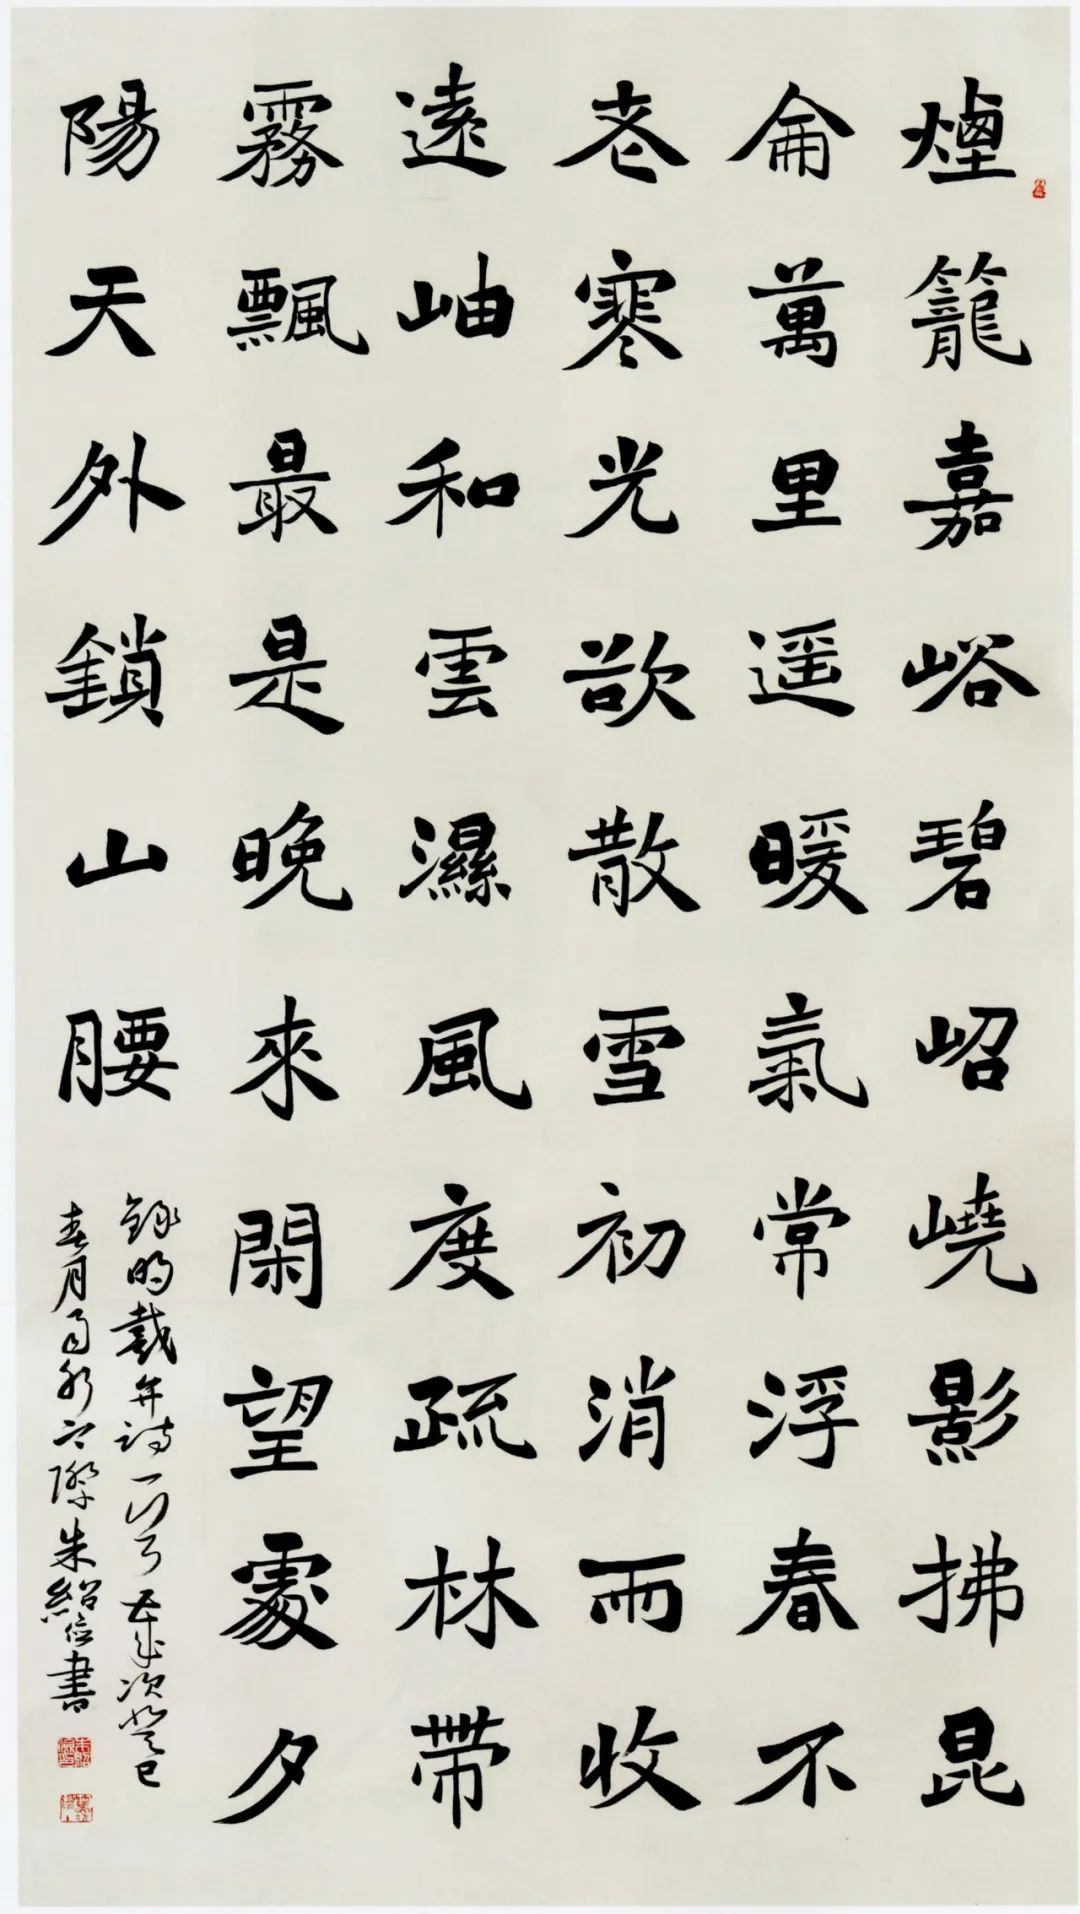 煙籠嘉峪碧岧嶢影拂昆
侖萬里遥暖氣常浮春不
老寒光欲散雪初消雨收
遠岫和雲濕風度疏林帶
霧飄最是晚來閑望處夕
陽天外鎖山腰
錄明戴弁詩一首歲次癸巳
春月朱紹書